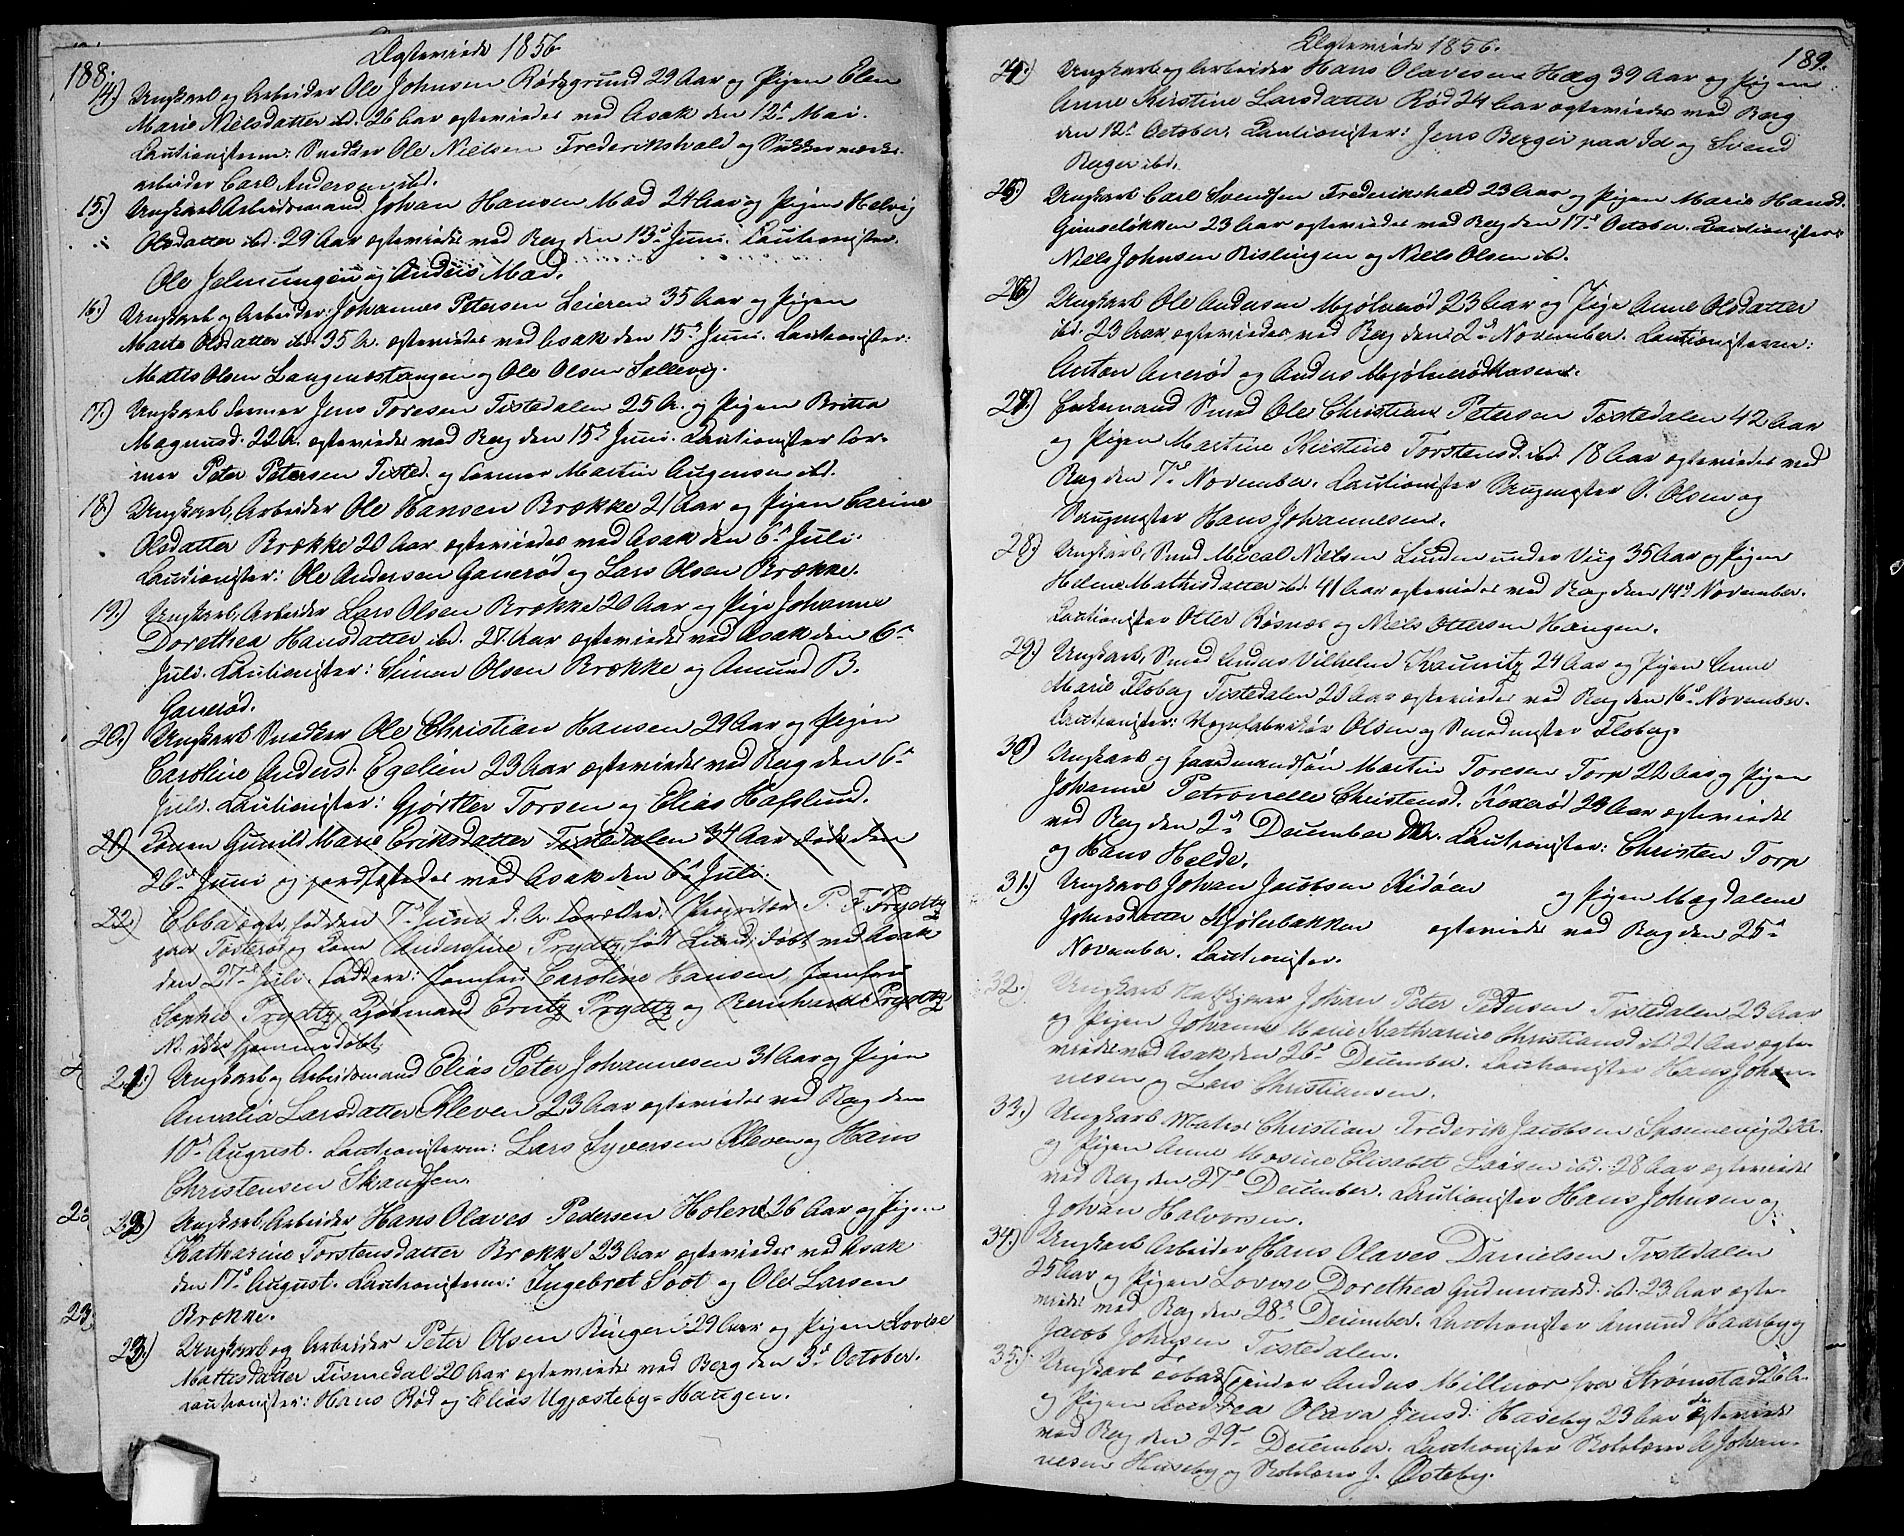 188.
Ægteviede 1856.
14) Ungkarl og Arbeider Ole Johnsen Rødsgrund 29 Aar og Pigen Elen
Marie Nielsdatter ibd. 26 Aar ægteviede ved Asak den 12te Mai.
Cautionisterne: Snedker Ole Nielsen Frederikshald og
arbeider Carl Andersen ibd.
15.) Ungkarl Arbeidsmand Johan Hansen Mad 24 Aar og Pigen Helvig
Olsdatter ibd. 29 Aar ægteviede ved Berg den 13de Juni. Cautionister.
Ole Jelmungen og Anders Mad.
16.) Ungkarl og Arbeider: Johannes Petersen Leieren 35 Aar og Pigen
Marte Olsdatter ibd. 35 A. ægteviede ved Asak den 15de Juni. Cautionister:
Matts Olsen Langenæstangen og Ole Olsen Sellevig.
17.) Ungkarl Former Jens Toresen Tistedalen 25 A. og Pigen Britta
Magnusd. 22 A. ægteviede ved Berg den 15de Juni. Cautionister For-
mer Peter Petersen Tisted. og Former Martin Augensen ibd.
18.) Ungkarl, Arbeider Ole Hansen Brække 21 Aar og Pigen Carine
Olsdatter Brække 20 Aar ægteviede ved Asak den 6te Juli.
Cautionister: Ole Andersen Ganerød og Lars Olsen Brække.
19.) Ungkarl, Arbeider Lars Olsen Brække 20 Aar og Pige Johanne
Dorethea Hansdatter ibd. 27 Aar ægteviede ved Asak den 6te
Juli. Cautionister: Simon Olsen Brække og Amund B.
Ganerød.
20.) Ungkarl Snedker Ole Christian Hansen 29 Aar og Pigen
Caroline Andersd. Egelien 23 Aar ægteviede ved Berg den 6te
Juli. Cautionister: Gjørtler Torsen og Elias Hafslund.
21) Konen Gunild Marie Eriksdatter Tistedalen 34 Aar døde den
26de Juni og jordfæstedes ved Asak den 6te Juli.
22.) Ebba ægte, fød den 7de Juni d. A. Forældre: Proprietær P. F. Prydtz
paa Tosterød og Kone Andersine Prydtz, født Lund, døbt ved Asak
den 27de Juli. Faddere: Jomfru Caroline Hansen, Jomfru
Sophie Prydtz, Kjøbmand Erntz Prydtz og Bernhardt Prydtz
N. ikke hjemmedøbt.
21.) Ungkarl og Arbeidsmand Elias Peter Johannesen 31 Aar og Pigen
Amalia Larsdatter Kleven 23 Aar ægteviede ved Berg den
10de August. Cautionisterne: Lars Syversen Kleven og Hans
Christensen Skandsen.
22) Ungkarl, Arbeider Hans Olaves Pedersen Holen 26 Aar og Pigen
Katharine Torstensdatter Brække 23 Aar ægteviede ved Asak
den 17de August. Cautionisterne: Ingebret Soot og Ole Larsen
Brække.
23.) Ungkarl og Arbeider Peter Olsen Ringen 29 Aar og Pigen Lovise
Mattisdatter Fismedal 20 Aar ægteviede ved Berg den 3de October.
Cautionister: Hans Rød og Elias Ugjesteby-Haugen.
Ægteviede 1856.
189.
24.) Ungkarl og Arbeider Hans Olavesen Hæg 39 Aar og Pigen
Anne Kirstine Larsdatter Rød 24 Aar ægteviede ved Berg
den 12te October. Cautionister: Jens Berger paa Id og Svend
Berger ibd.
25.) Ungkarl Carl Svendsen Frederikshald 23 Aar og Pigen Marie Hansd.
Gimseløkken 23 Aar ægteviede ved Berg den 17de October. Cautionister
Niels Johnsen Rislingen og Niels Olsen ibd.
26.) Ungkarl Ole Andersen Mjølnerød 23 Aar og Pige Anne Olsdatter
ibd. 23 Aar ægteviede ved Berg den 2de November. Cautionisterne:
Anton Anerød og Anders Mjølnerødkasen.
27.) Enkemand Smed Ole Christian Petersen Tistedalen 42 Aar
og Pigen Martine Kirstine Torstensd. ibd. 18 Aar ægteviede ved
Berg den 7de November. Cautionister Brugmester O. Olsen og
Brugmester Hans Johannesen.
28.) Ungkarl, Smed Mical Nielsen Lunden under Viig 35 Aar og Pigen
Helene Mathisdatter ibd. 41 Aar ægteviede ved Berg den 14de November.
Cautionister Otter Røsnæs og Niels Ottersen Haugen.
29.) Ungkarl, Smed Anders Vilhelm Kaunitz 24 Aar og Pigen Anne
Marie Floberg Tistedalen 25 Aar ægteviede ved Berg den 16de November.
Cautionister: Vognfabrikør Olsen og Smedmester Floberg.
30) Ungkarl og Gaardmandssøn Martin Toresen Torp 22 Aar og Pigen
Johanne Petronelle Christensd. Koxerød 23 Aar ægteviede
ved Berg den 2de December. Cautionister: Christen Torp
og Hans Helde.
31.) Ungkarl Johan Jacobsen Kidøen og Pigen Magdalene
Johnsdatter Skjølerbakken ægteviede ved Berg den 25de
November. Cautionister.
32.) Ungkarl Johan Peter Pedersen Tistedalen 23 Aar
og Pigen Johanne Marie Katharine Christiansd. ibd. 21 Aar ægte-
viede ved Asak den 26de December. Cautionister Hans Johan-
nesen og Lars Christiansen.
33.) Ungkarl Matros Christian Frederik Jacobsen Sponnevig 29 A.
og Pigen Anne Mosine Elisabet Larsen ibd. 28 Aar ægteviede
ved Berg den 27de December. Cautionister Hans Johnsen og
Johan Halvorsen.
34.) Ungkarl Arbeider Hans Olaves Danielsen Tistedalen
25 Aar og Pigen Lovise Dorethea Gudmundsd. ibd. 23 Aar ægte-
viede ved Berg den 28de December. Cautionister Amund Haarby og
Jacob Johnsen Tistedalen.
35.) Ungkarl Tobakspinder Anders Millmor fra Strømstad 26 A.
og Pigen Andrea Olava Jensd. Haseby 23 Aar ægteviede
ved Berg den 29de December. Cautionister Johan-
nesen Huseby og J. Østeby.